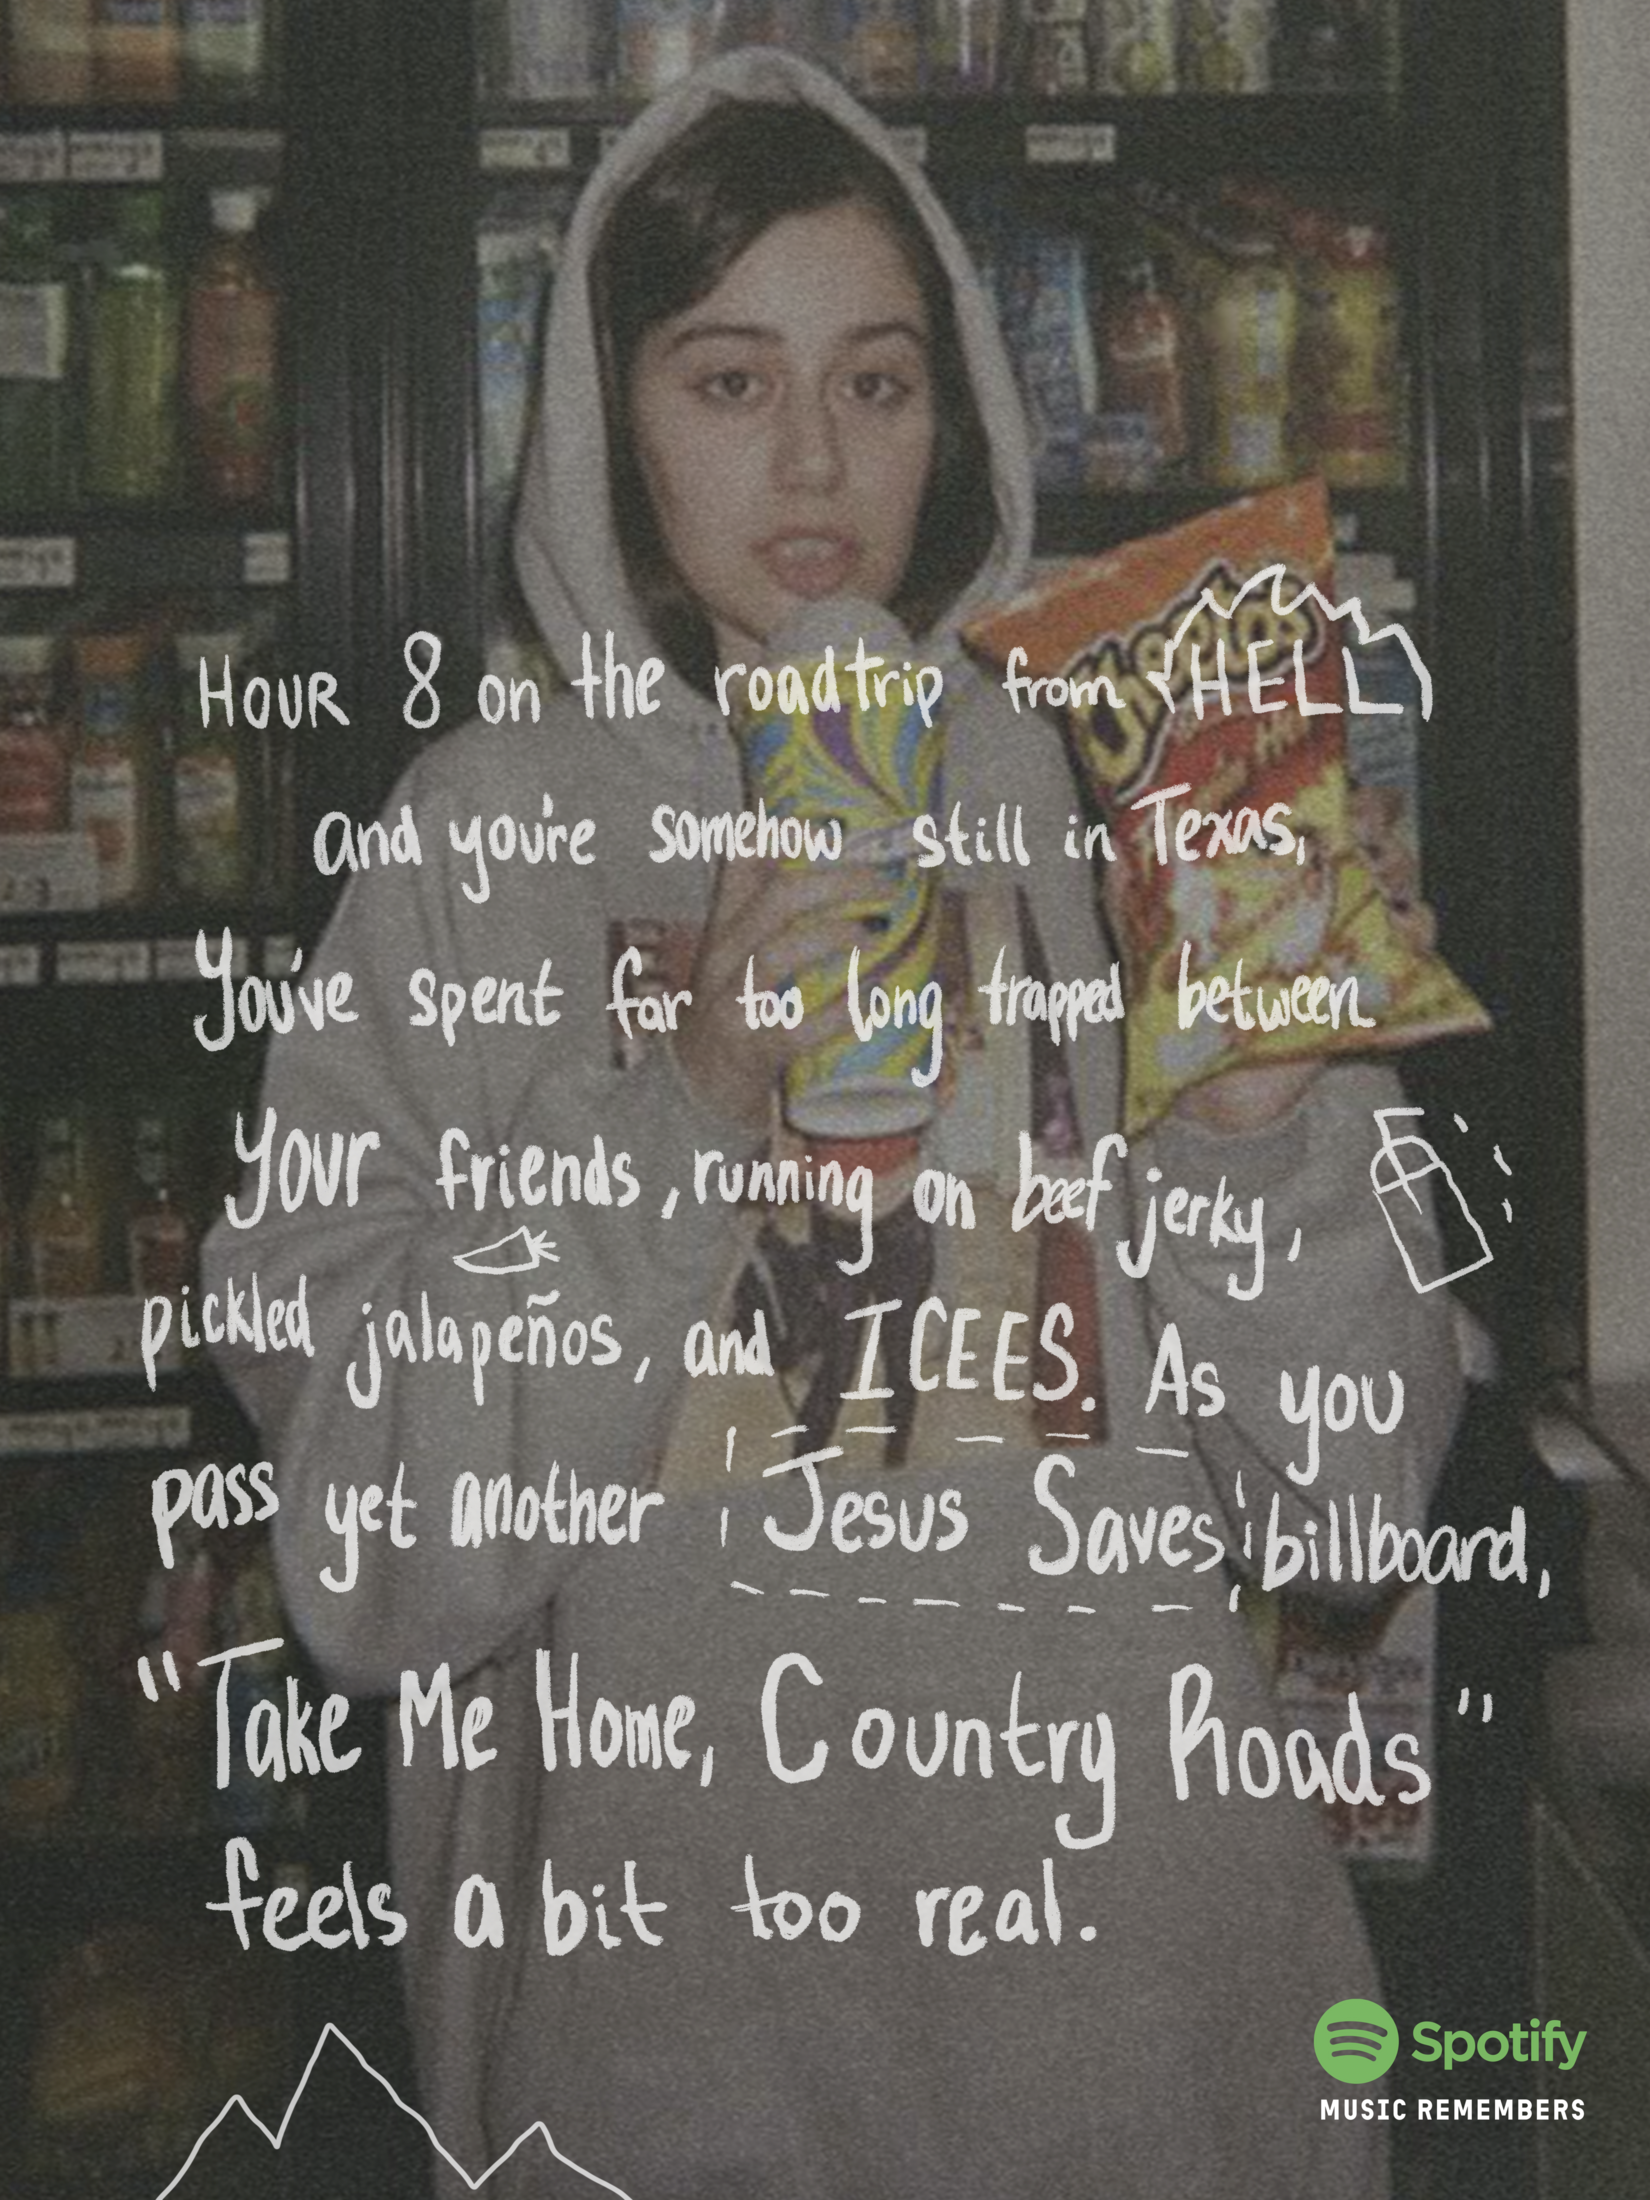 HOUR 8 on the roadtrip from HELL
and you're somehow still in Texas,
You've spent far too long trapped between
your friends, running on beef jerky,
pickled jalapeños, and ICEES. As you
pass yet another Jesus Saves billboard,
"Take Me Home, Country Roads"
feels a bit too real.
Cheetos
Spotify
MUSIC REMEMBERS